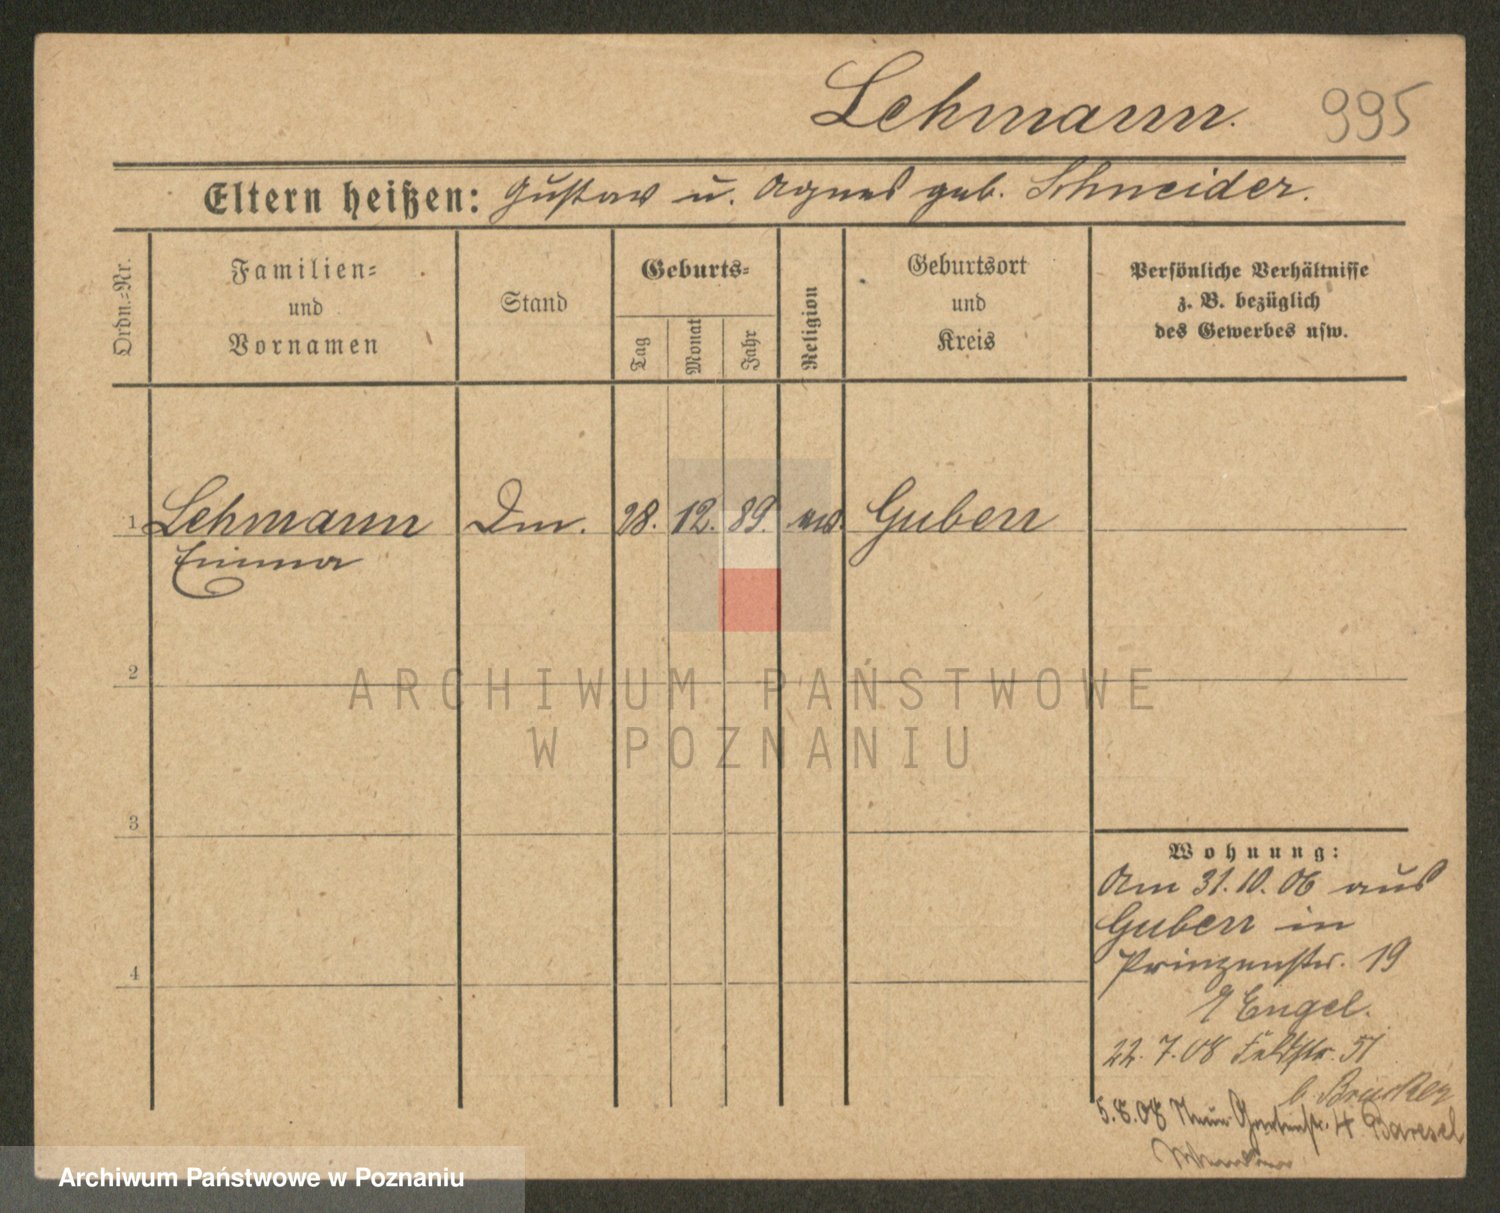 Lehmann. 995
Eltern heißen: Gustav u. Agnes geb. Schneider.
Ordn.=Nr.
Familien=
und
Vornamen
Stand
Geburts=
Tag
Monat
Jahr
Religion
Geburtsort
und
Kreis
Persönliche Verhältnisse
z. B. bezüglich
des Gewerbes usw.
1 Lehmann 28. 12. 89. ev. Guben
Emma
2
ARCHIWUM PAŃSTWOWE
W POZNANIU
3
4
Wohnung:
Am 31.10.06 aus
Guben in
Prinzenstr. 19
Engel.
22.7.08 Feldstr. 51
b.
5.8.08 Neue Gartenstr. 4 Baresel
Archiwum Państwowe w Poznaniu